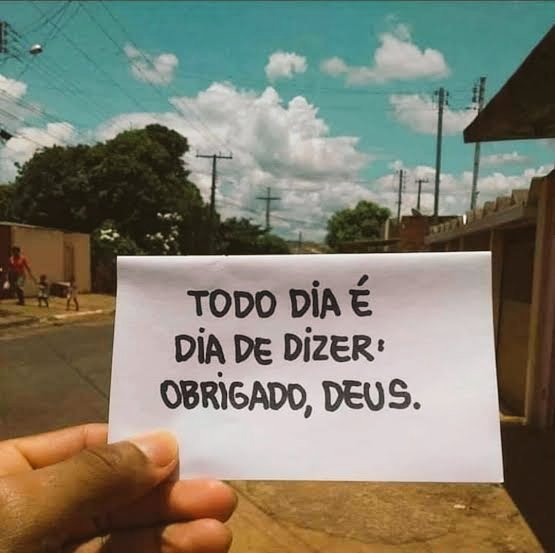 TODO DIA É
DIA DE DIZER:
OBRIGADO, DEUS.